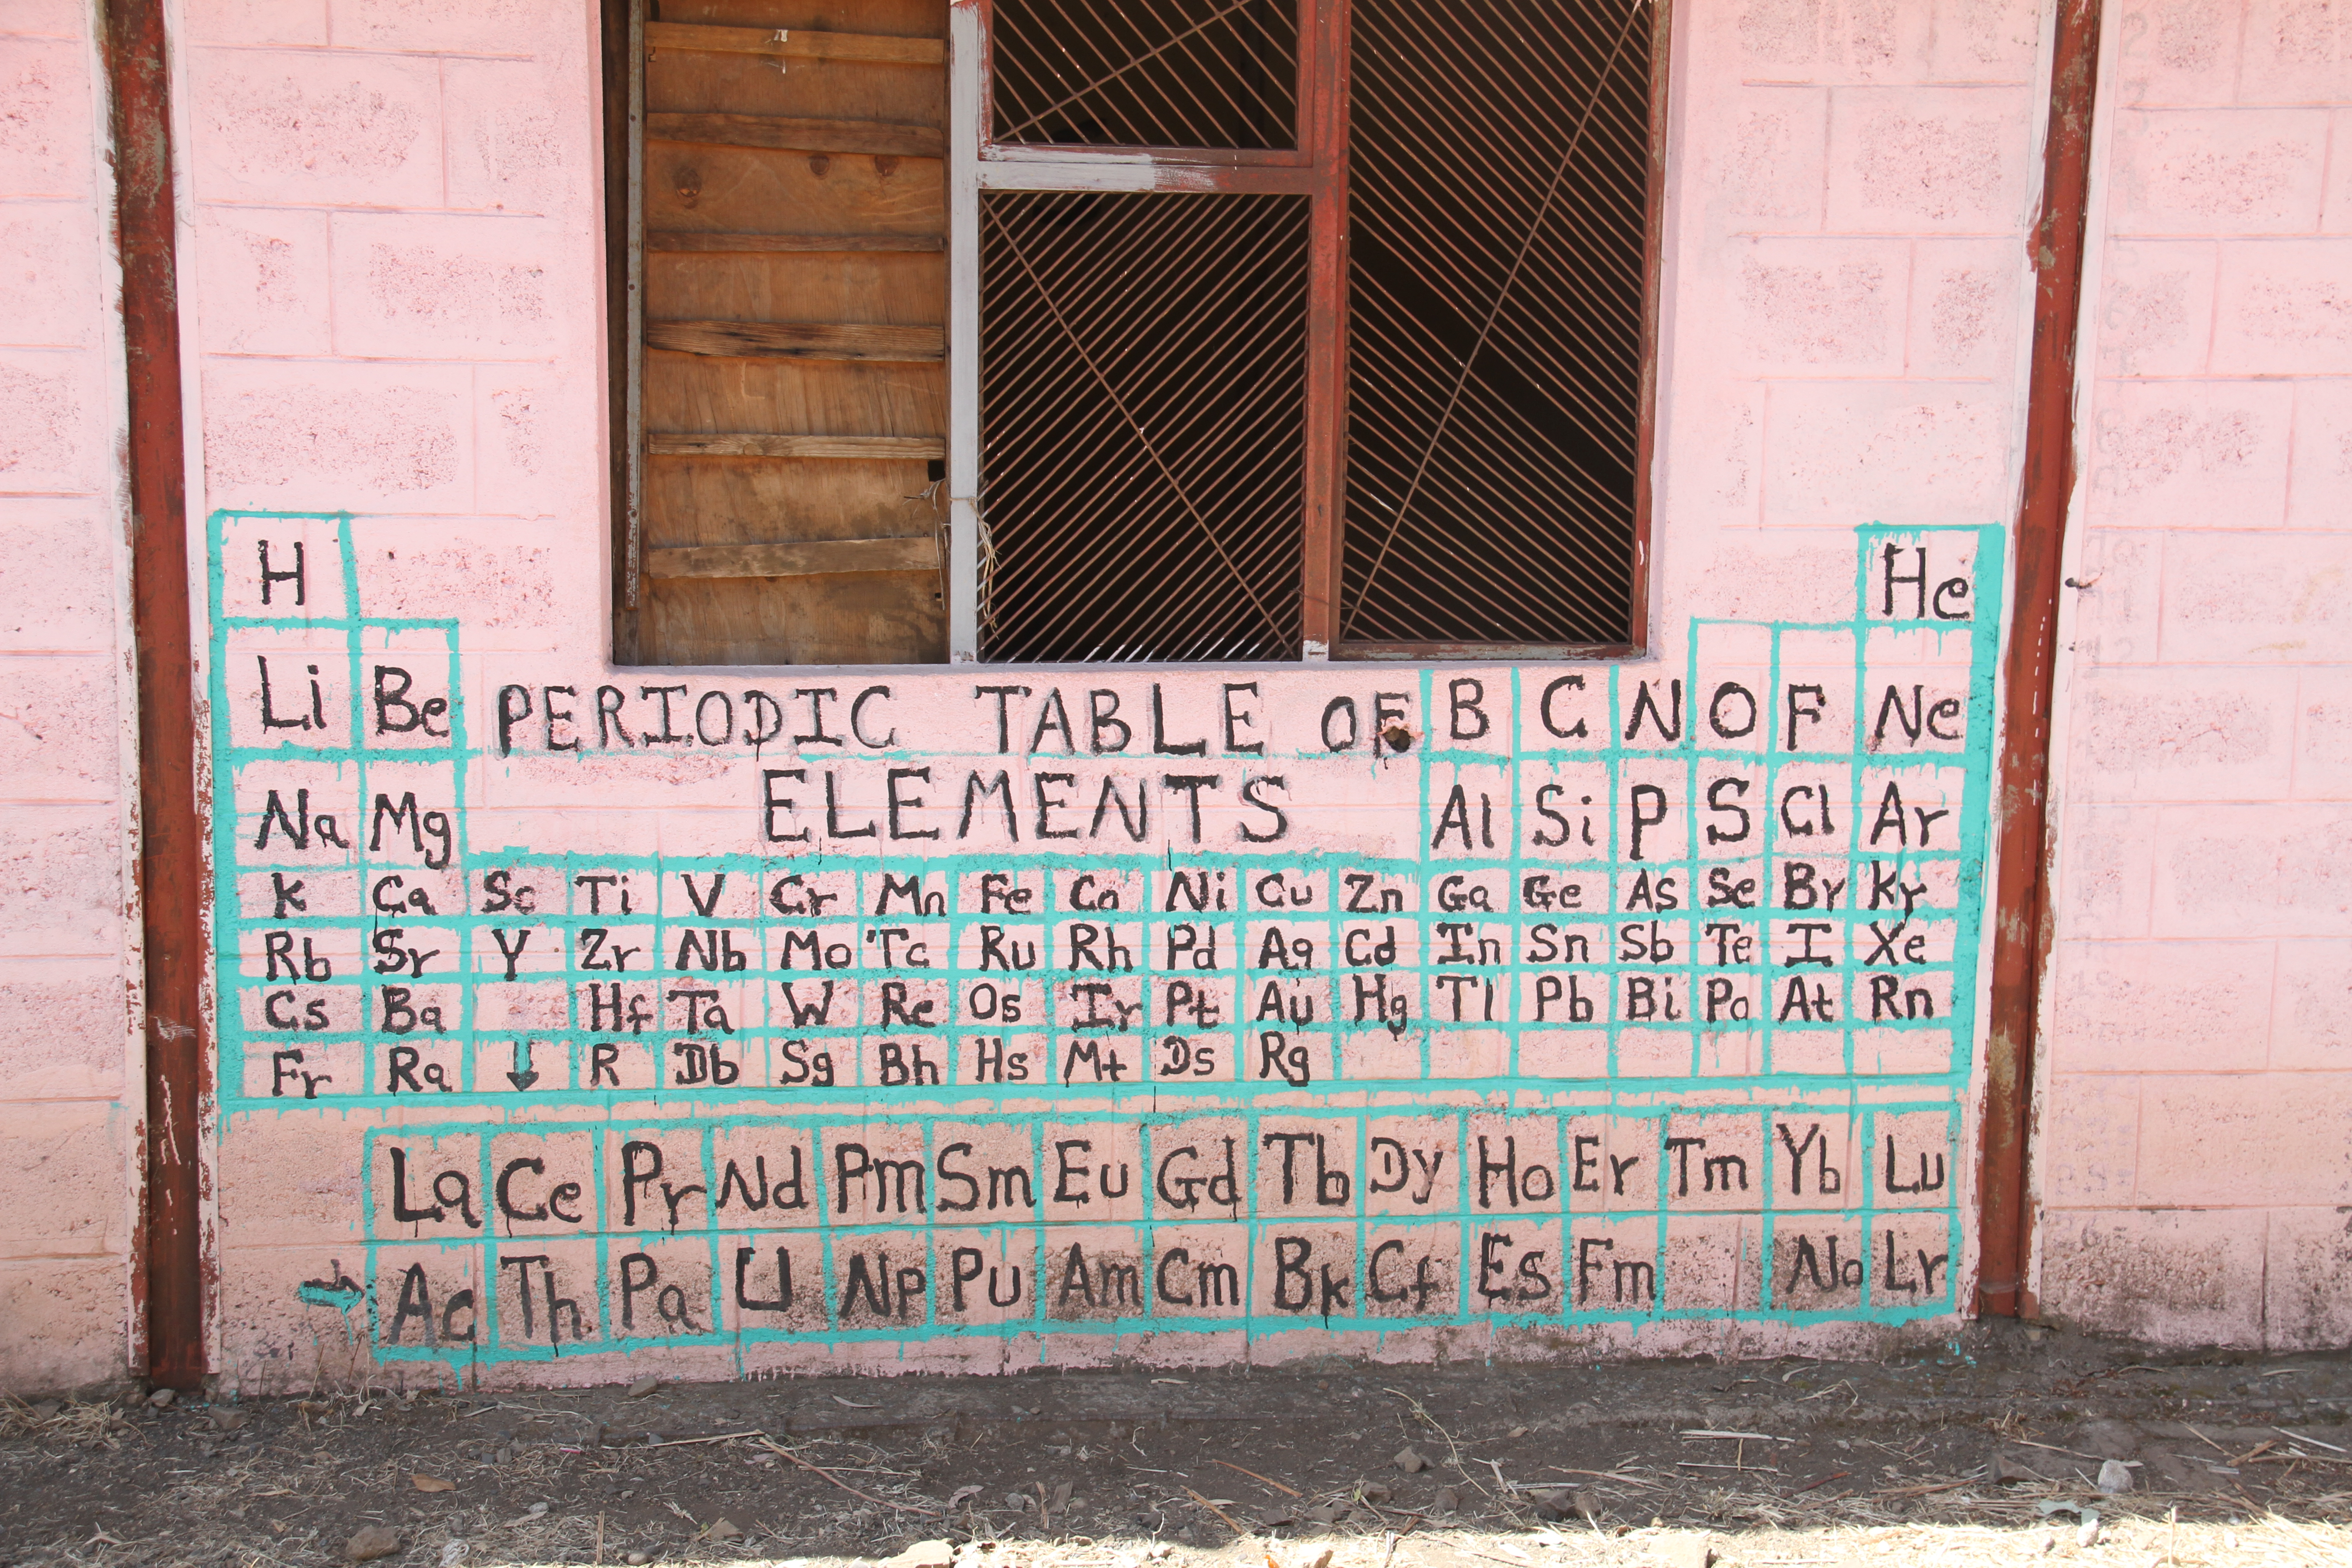 H He
Li Be PERIODIC TABLE OF B C N O F Ne
Na Mg ELEMENTS Al Si P S Cl Ar
K Ca Sc Ti V Cr Mn Fe Co Ni Cu Zn Ga Ge As Se Br Kr
Rb Sr Y Zr Nb Mo Tc Ru Rh Pd Ag Cd In Sn Sb Te I Xe
Cs Ba Hf Ta W Re Os Ir Pt Au Hg Tl Pb Bi Po At Rn
Fr Ra R Db Sg Bh Hs Mt Ds Rg
La Ce Pr Nd Pm Sm Eu Gd Tb Dy Ho Er Tm Yb Lu
Ac Th Pa U Np Pu Am Cm Bk Cf Es Fm No Lr